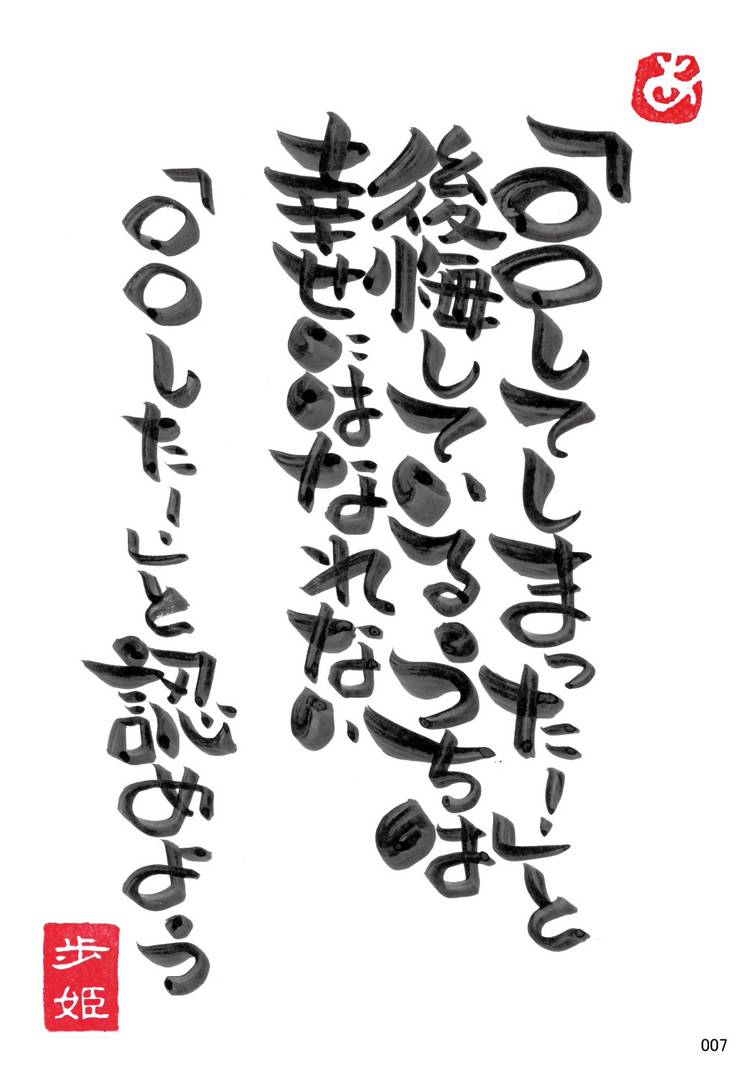 あ
「○○してしまった！」と
後悔しているうちは
幸せにはなれない
「○○した！」と認めよう
歩姫
007